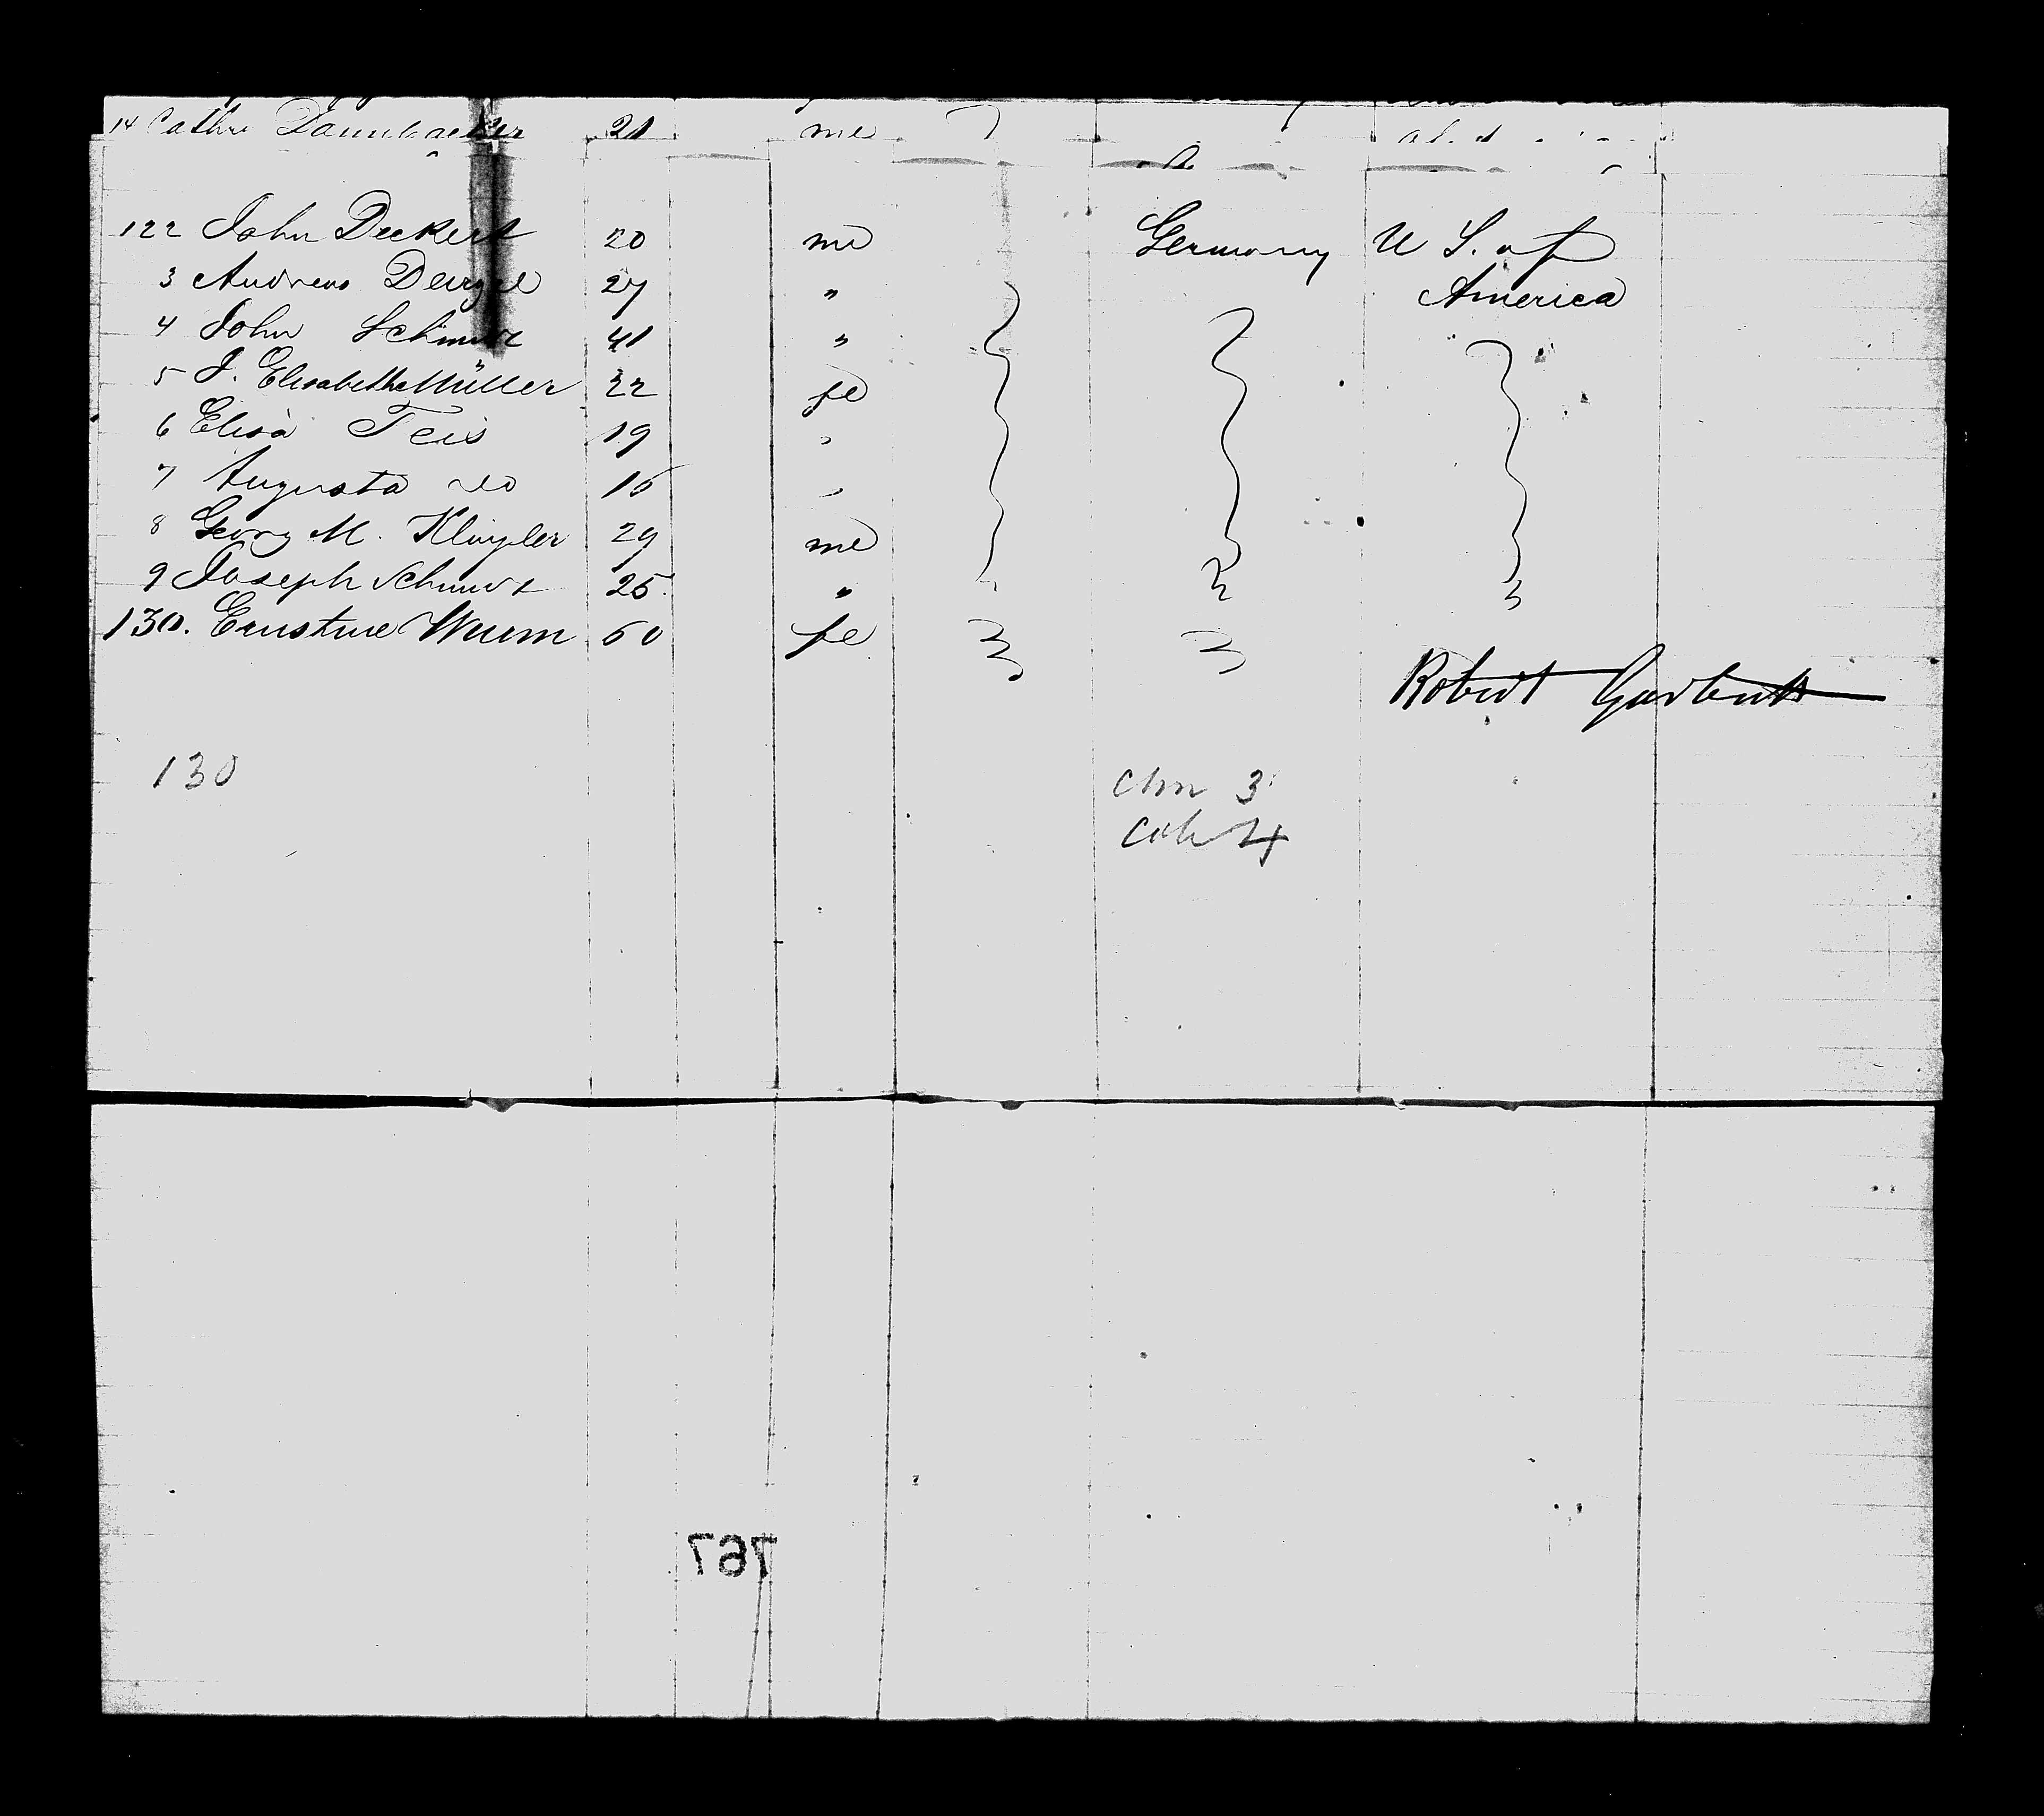 14 Cathr Dannbacher 21 me
122 John Deckert 20 me Germany U S. of
3 Andreas 27 " America
4 John 41 "
5 J. Elisabetha Müller 22 fe
6 Elisa Teis 19 "
7 Augusta do 16 "
8 Georg M. Klingler 29 me
9 Joseph Schmidt 25 "
130. Ernstine Wurm 60 fe
Robert Garbutt
130 Chn 3
4
767